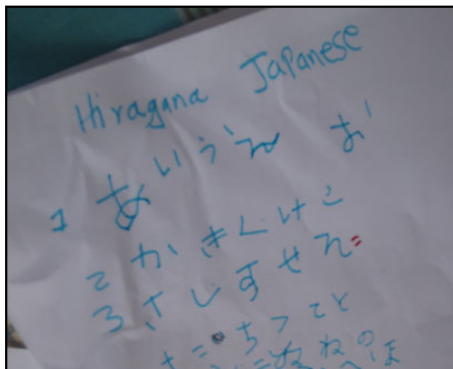 Hiragana Japanese
1 あ い う え お
2 か き く け こ
3 さ し す せ
た ち つ て と
ぬ ね の